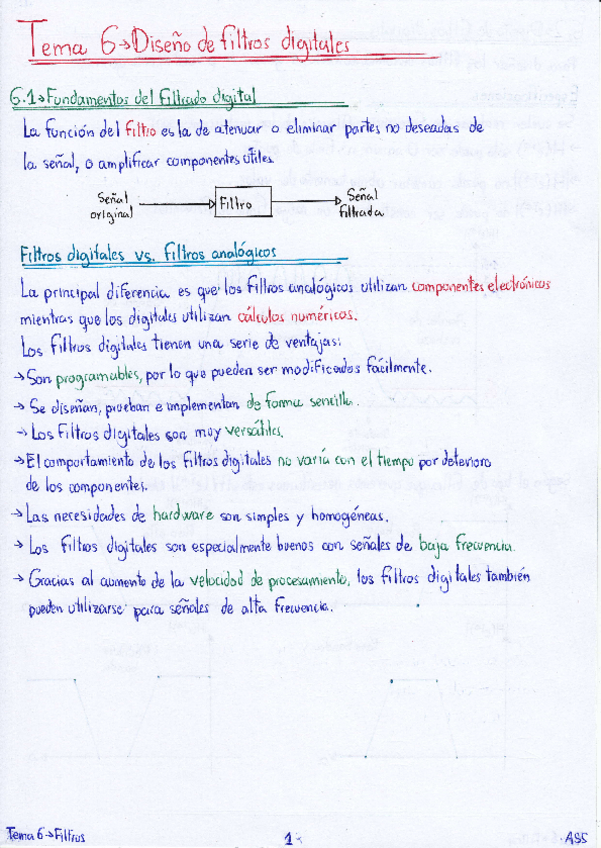 Tema 6→Diseño de filtros digitales
6.1→Fundamentos del filtrado digital
La función del filtro es la de atenuar o eliminar partes no deseadas de
la señal, o amplificar componentes útiles.
Señal original → Filtro → Señal filtrada
Filtros digitales vs. filtros analógicos
La principal diferencia es que los filtros analógicos utilizan componentes electrónicos
mientras que los digitales utilizan cálculos numéricos.
Los filtros digitales tienen una serie de ventajas:
→ Son programables, por lo que pueden ser modificados fácilmente.
→ Se diseñan, prueban e implementan de forma sencilla.
→ Los filtros digitales son muy versátiles.
→ El comportamiento de los filtros digitales no varía con el tiempo por deterioro
de los componentes.
→ Las necesidades de hardware son simples y homogéneas.
→ Los filtros digitales son especialmente buenos con señales de baja frecuencia.
→ Gracias al aumento de la velocidad de procesamiento, los filtros digitales también
pueden utilizarse para señales de alta frecuencia.
Tema 6→Filtros
1
ASS